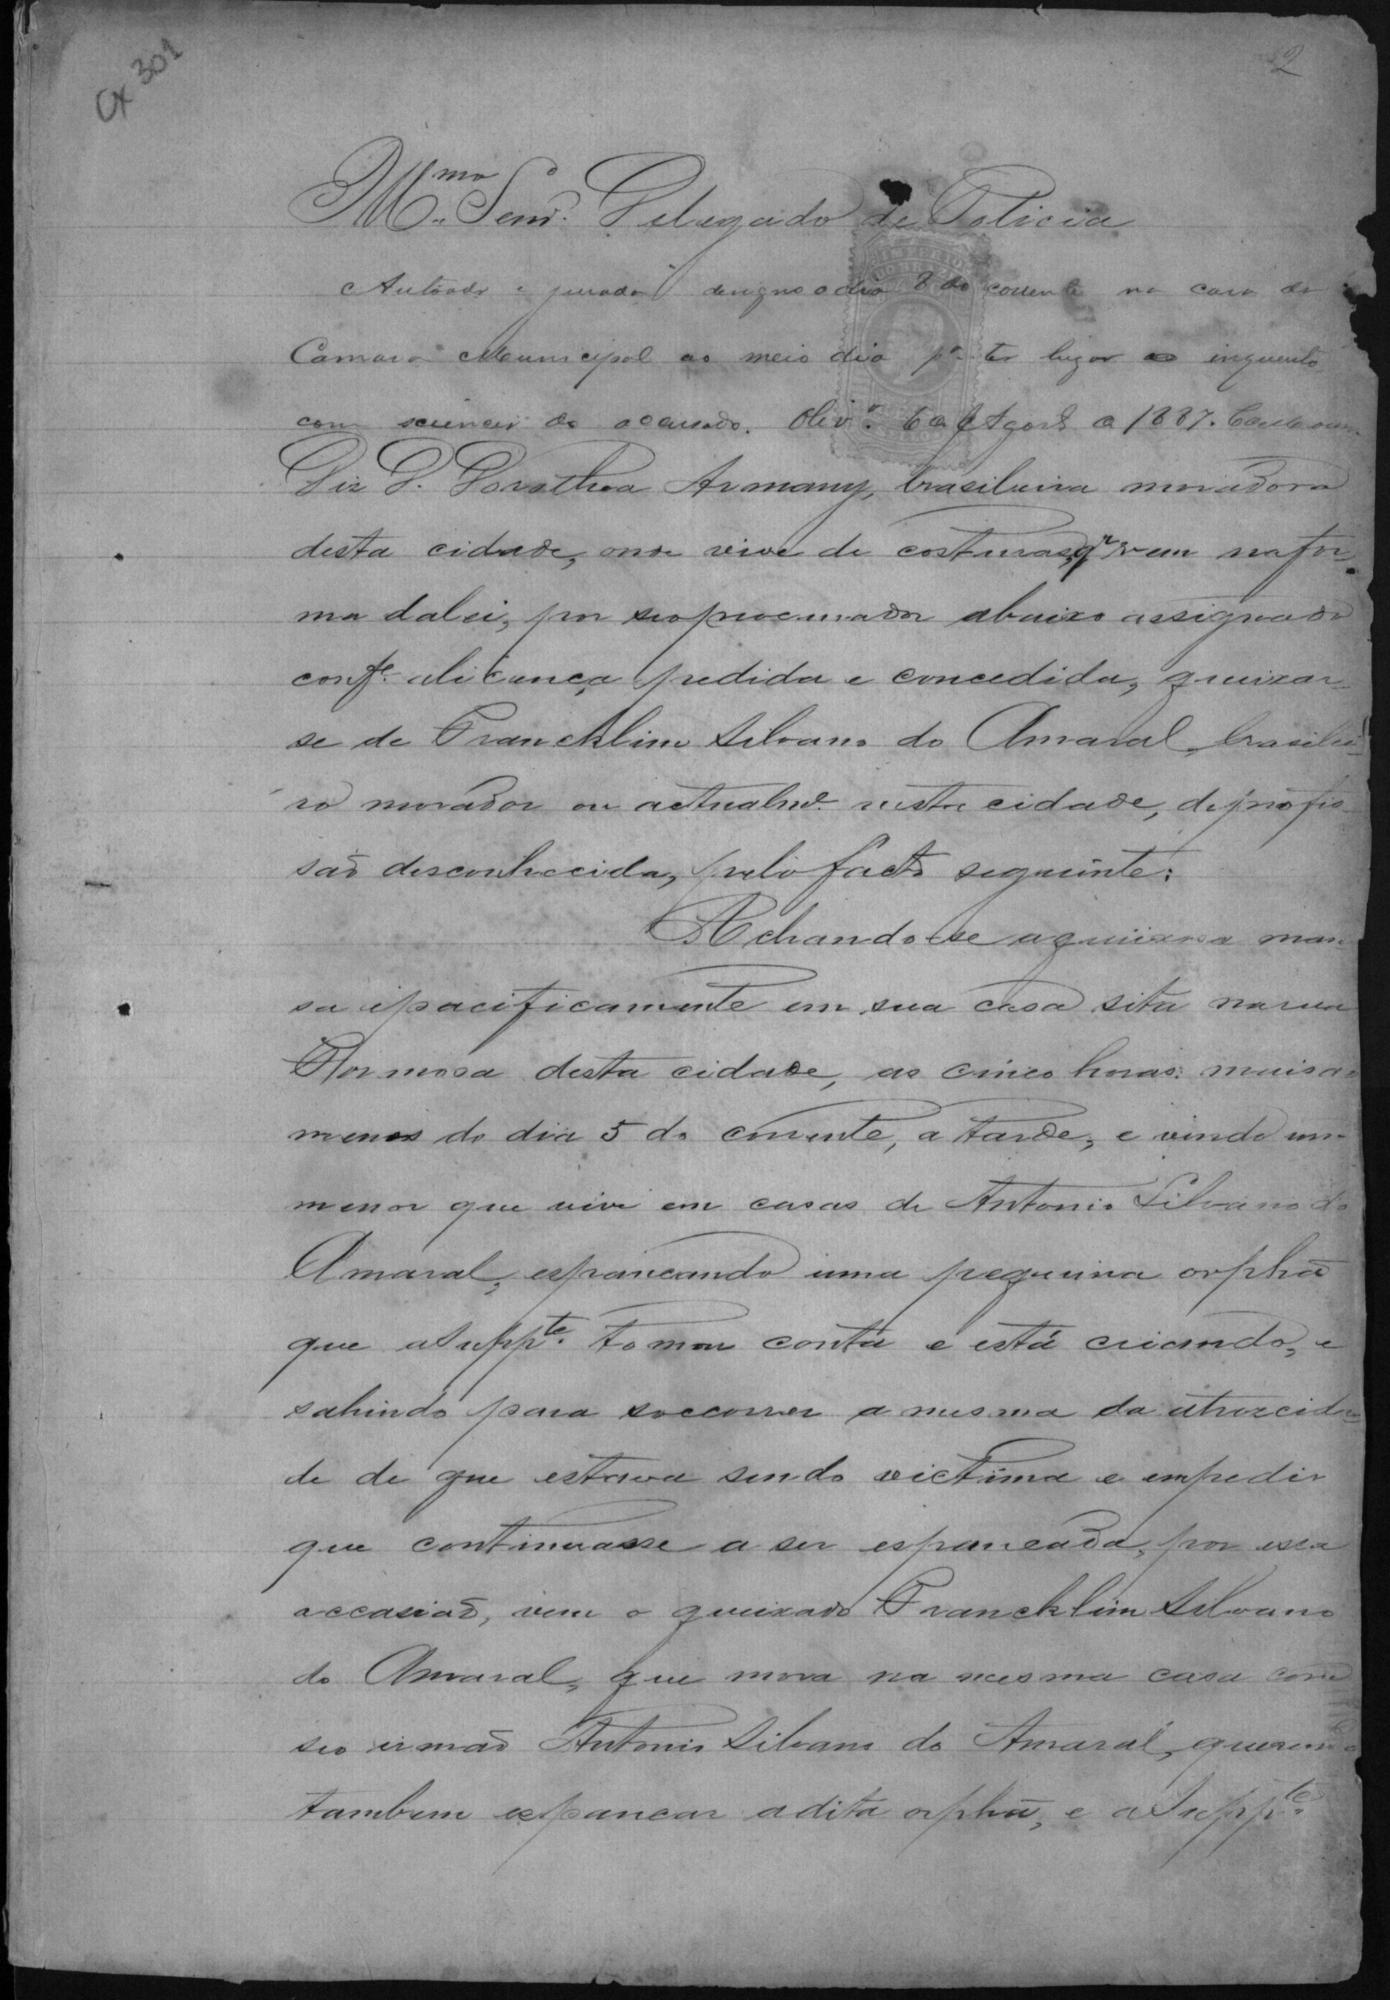 Cx 301
2
Illmo Senr. Delegado de Policia
Autoado e jurado designo o dia 8 do corrente na casa da
Camara Municipal ao meio dia pa ter lugar o inquerito
com sciencia do accusado. Olivra. 6 de Agosto de 1887.
Diz D. Dorothea Armany, brasileira moradora
desta cidade, onde vive de costuras, qr vem na for-
ma da lei, por seo procurador abaixo assignado
confe. a licença pedida e concedida, queixar-
se de Francklim Silvano do Amaral, brasilei-
ro morador ou actualme. nesta cidade, de profis-
são desconhecida, pelo facto seguinte:
Achando-se a queixosa man-
sa e pacificamente em sua casa sita na rua
Formosa desta cidade, as cinco horas mais ou
menos do dia 5 do corrente, a tarde, e vindo um
menor que vive em casas de Antonio Silvano do
Amaral, espancando uma pequena orphã
que a Suppte. tomou conta e está criando, e
sahindo para soccorrer a mesma da atrocida-
de de que estava sendo victima e empedir
que continuasse a ser espancada, por essa
occasião, vem o queixado Francklim Silvano
do Amaral, que mora na mesma casa com
seo irmão Antonio Silvano do Amaral, querendo
tambem espancar a dita orphã, e a Suppte.